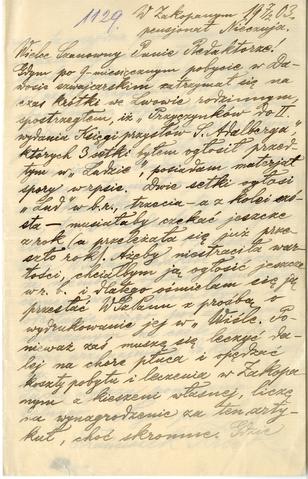 1129. W Zakopanym 19 7/2 03.
pensjonat Nieczuja.
Wielce Szanowny Panie Redaktorze.
Gdym po 9-miesięcznym pobycie w Da-
vosie szwajcarskim zatrzymał się na
czas krótki we Lwowie rodzinnym
spostrzegłem, iż „Przyczynków do II.
wydania Księgi przysłów S. Adalberga"
których 3 setki byłem ogłosił przed-
tym w „Ludzie", posiadam materjał
spory w rpsie. Dwie setki ogłosi
„Lud" w b.r., trzecia – a z kolei szó-
sta – musiałaby czekać jeszcze
z rok (a przeleżała się już prze-
szło rok). Ażeby nie straciła war-
tości, chciałbym ją ogłosić jeszcze
w r. b. i dlatego ośmielam się ją
przesłać WPanu z prośbą o
wydrukowanie jej w „Wiśle". Po-
nieważ zaś muszę się leczyć da-
lej na chore płuca i opędzać
koszty pobytu i leczenia w Zakopa-
nym z kieszeni własnej, liczę
na wynagrodzenie za ten arty-
kuł, choć skromne. Gdzie